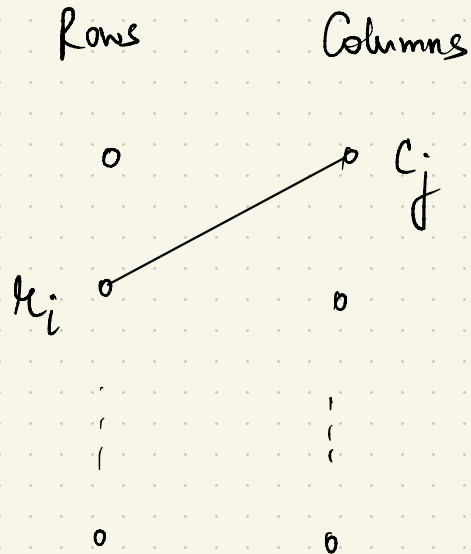 Rows Columns
C_j
r_i